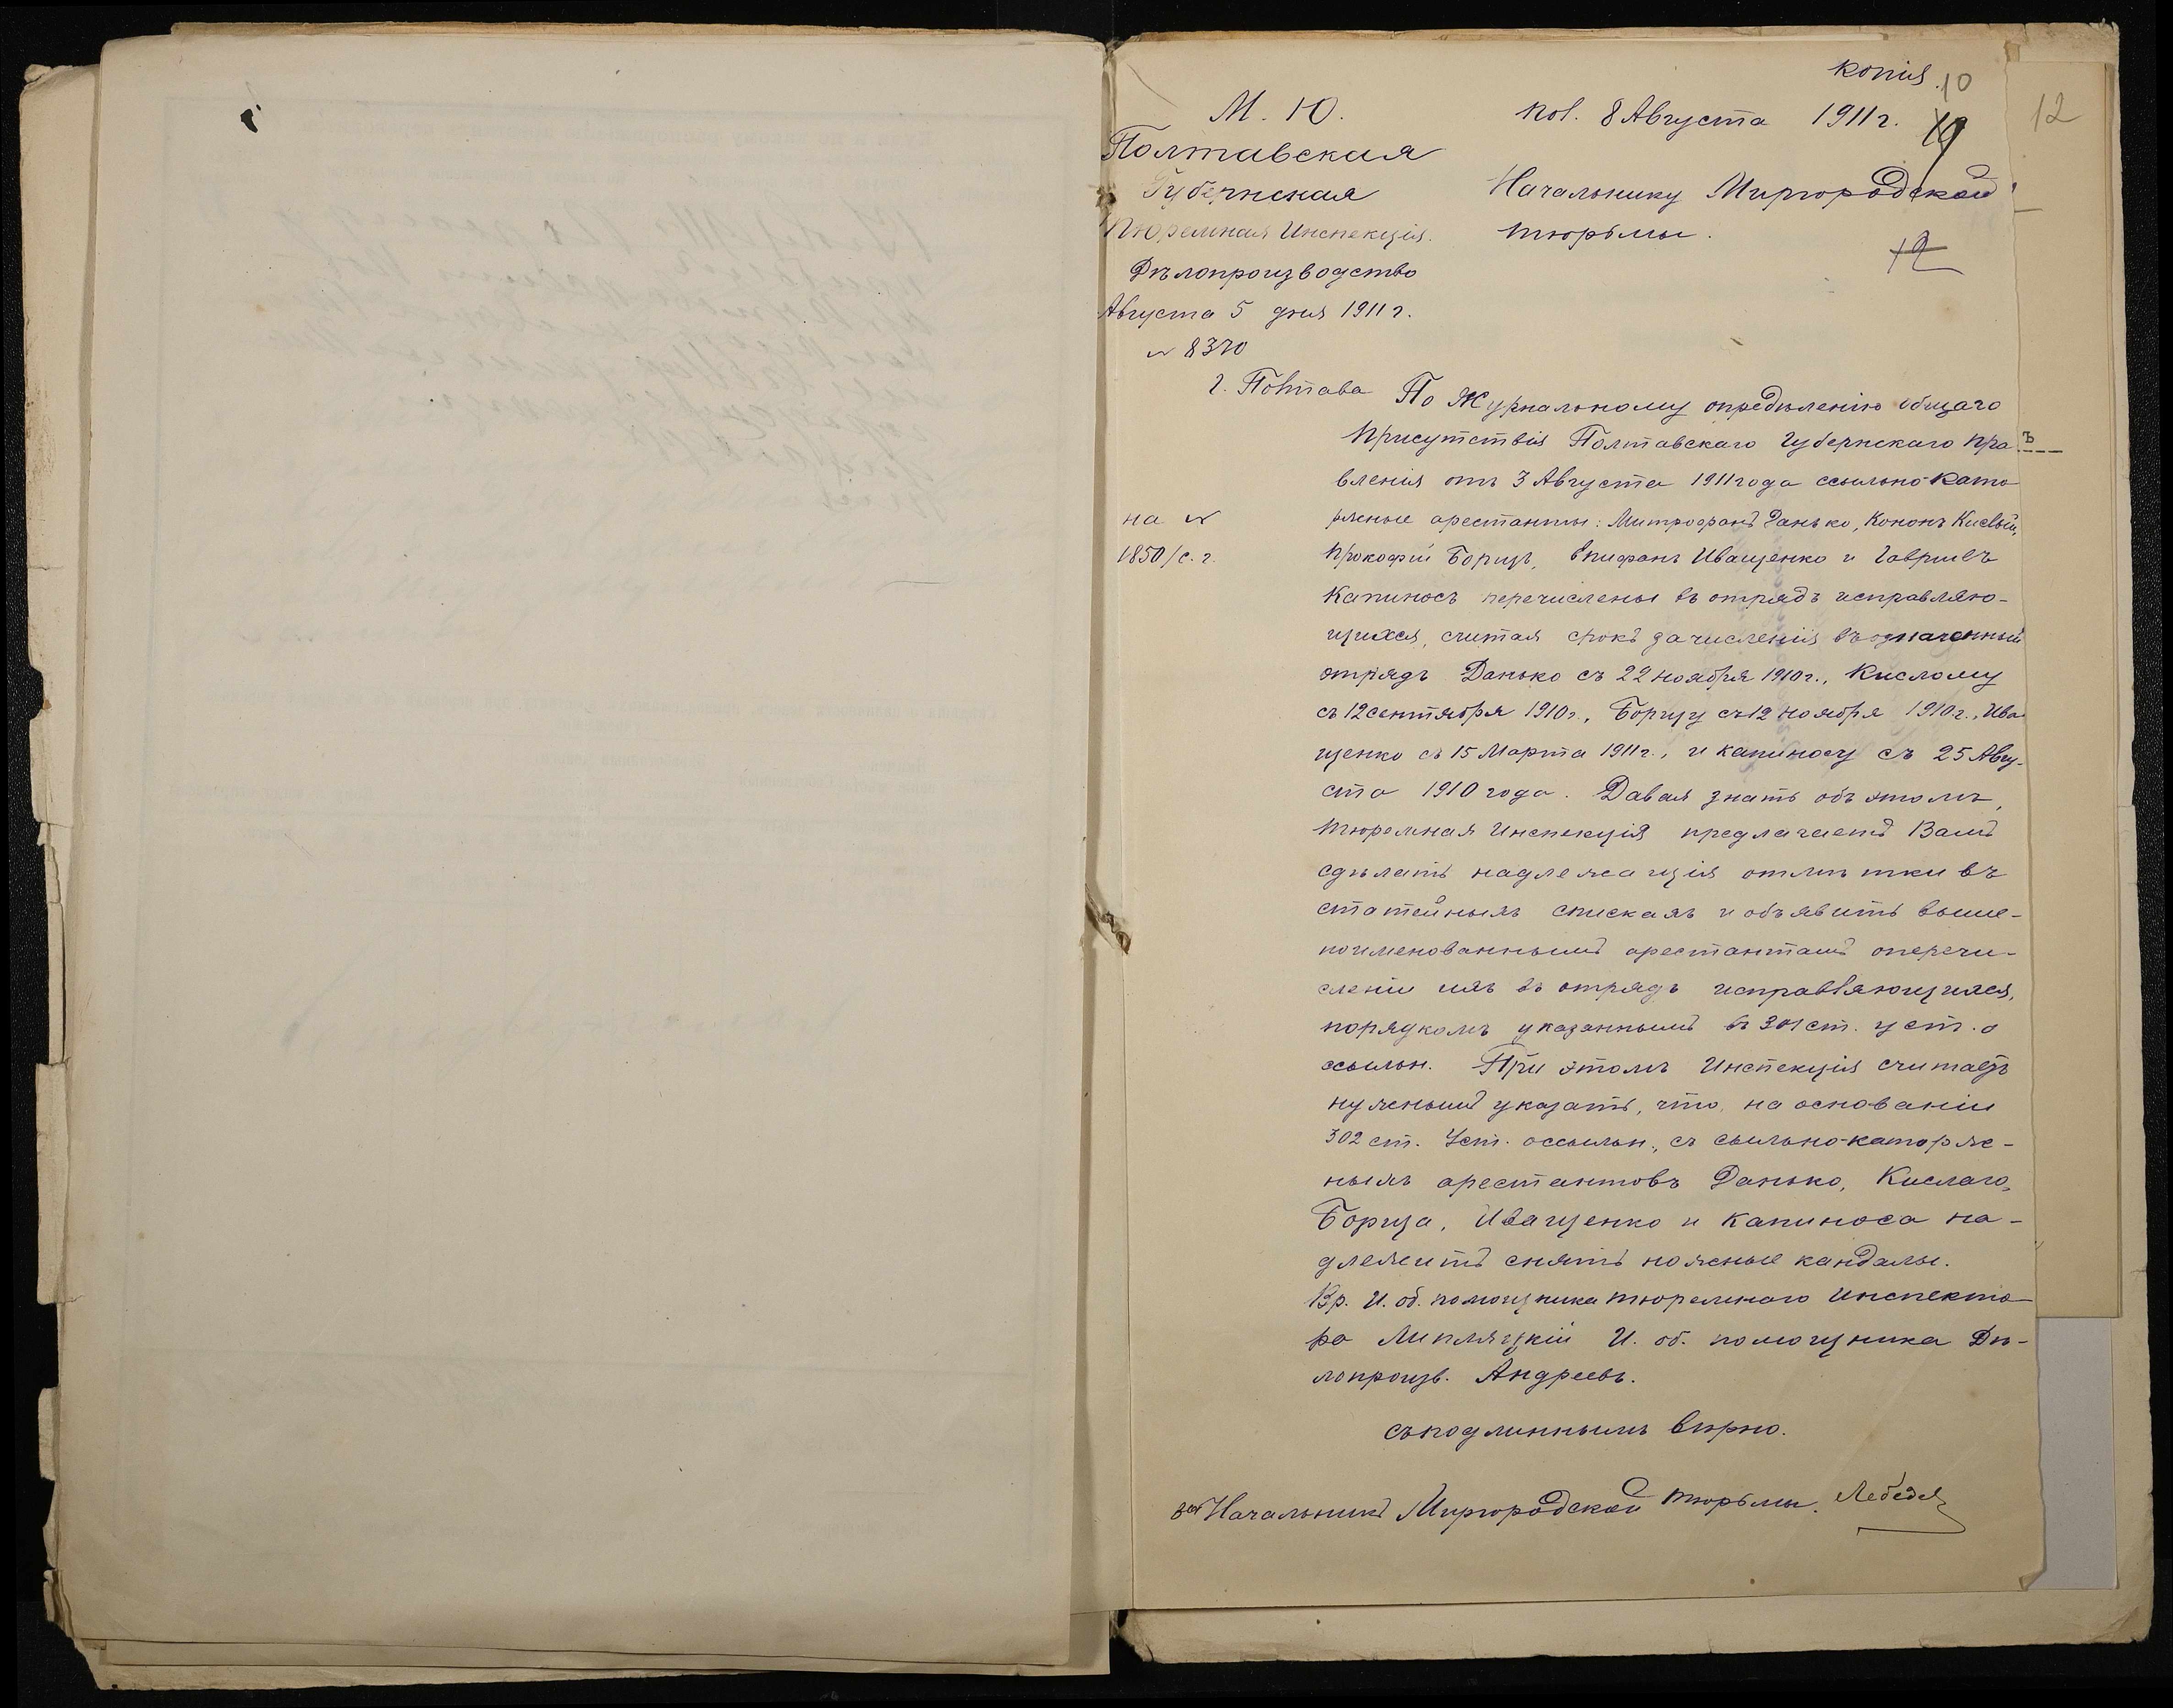 копія
10
М. Ю.
Полтавская
Губернская
Тюремная Инспекція.
Дѣлопроизводство
Августа 5 дня 1911 г.
№ 8370
г. Полтава
на №
1850/с. г.
пол. 8 Августа 1911 г.
19
12
Начальнику Миргородской
тюрьмы.
12
По Журнальному опредѣленію общаго
Присутствія Полтавскаго Губернскаго Пра
вленія отъ 3 Августа 1911 года ссыльно-като
ржные арестанты: Митрофанъ Данько, Кононъ Кислый,
Прокофій Борщъ, Епифанъ Иващенко и Гавріилъ
Капиносъ перечислены въ отрядъ исправляю-
щихся, считая срокъ зачисленія въ означенный
отрядъ Данько съ 22 ноября 1910 г., Кислому
съ 12 сентября 1910 г., Борщу съ 12 ноября 1910 г., Ива-
щенко съ 15 Марта 1911 г., и Капиносу съ 25 Авгу-
ста 1910 года. Давая знать объ этомъ,
Тюремная Инспекція предлагаетъ Вамъ
сдѣлать надлежащія отмѣтки въ
статейныхъ спискахъ и объявить выше-
поименованнымъ арестантамъ о перечи-
сленіи ихъ въ отрядъ исправляющихся,
порядкомъ указаннымъ въ 301 ст. уст. о
ссыльн. При этомъ Инспекція считаетъ
нужнымъ указать, что, на основаніи
302 ст. Уст. о ссыльн., съ сыльно-каторж-
ныхъ арестантовъ Данько, Кислаго,
Борща, Иващенко и Капиноса на-
длежитъ снять ножные кандалы.
Вр. И. об. помощника Тюремнаго Инспекто-
ра Липляцкій И. об. помощника Дѣ-
лопроизв. Андреевъ.
съ подлиннымъ вѣрно.
Начальникъ Миргородской тюрьмы. Лебедев